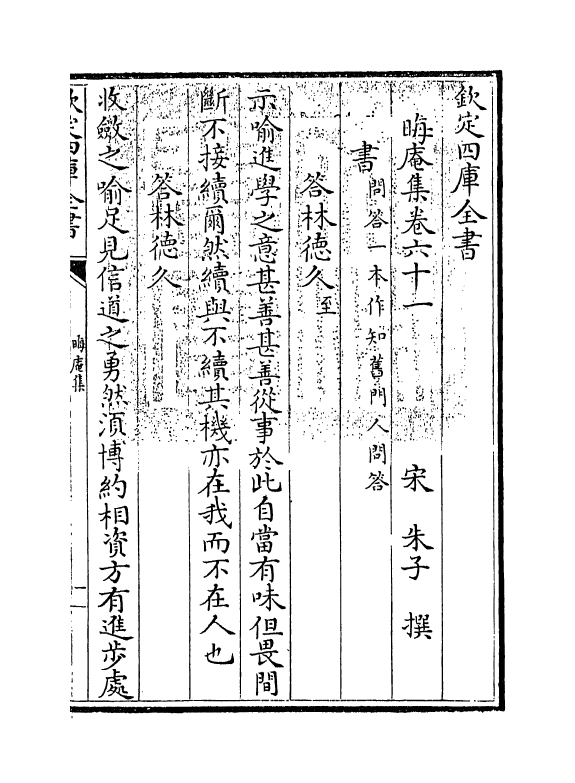 欽定四庫全書
晦庵集卷六十一
宋 朱子 撰
書問答一本作知舊門人問答
答林徳久至
示喻進學之意甚善甚善從事於此自當有味但畏間
斷不接續爾然續與不續其機亦在我而不在人也
答林徳久
收斂之喻足見信道之勇然湏博約相資方有進步處
欽定四庫全書
晦庵集
一